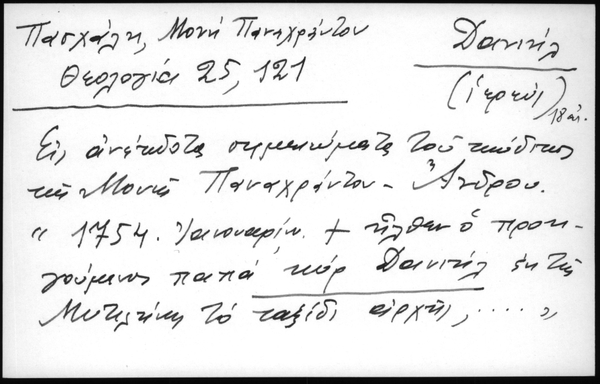 Πασχάλη, Μονή Παναχράντου
Θεολογία 25, 121
Δανιήλ
(ἱερεύς) 18 αἰ.
Εἰς ἀνέκδοτα σημειώματα τοῦ κώδικος
τῆς Μονῆς Παναχράντου - Ἄνδρου.
" 1754. Ἰανουαρίου. + ἦλθεν ὁ προη-
γούμενος παπά κύρ Δανιήλ ἐκ τῆς
Μυτιλήνης τό ταξίδι , ..... "